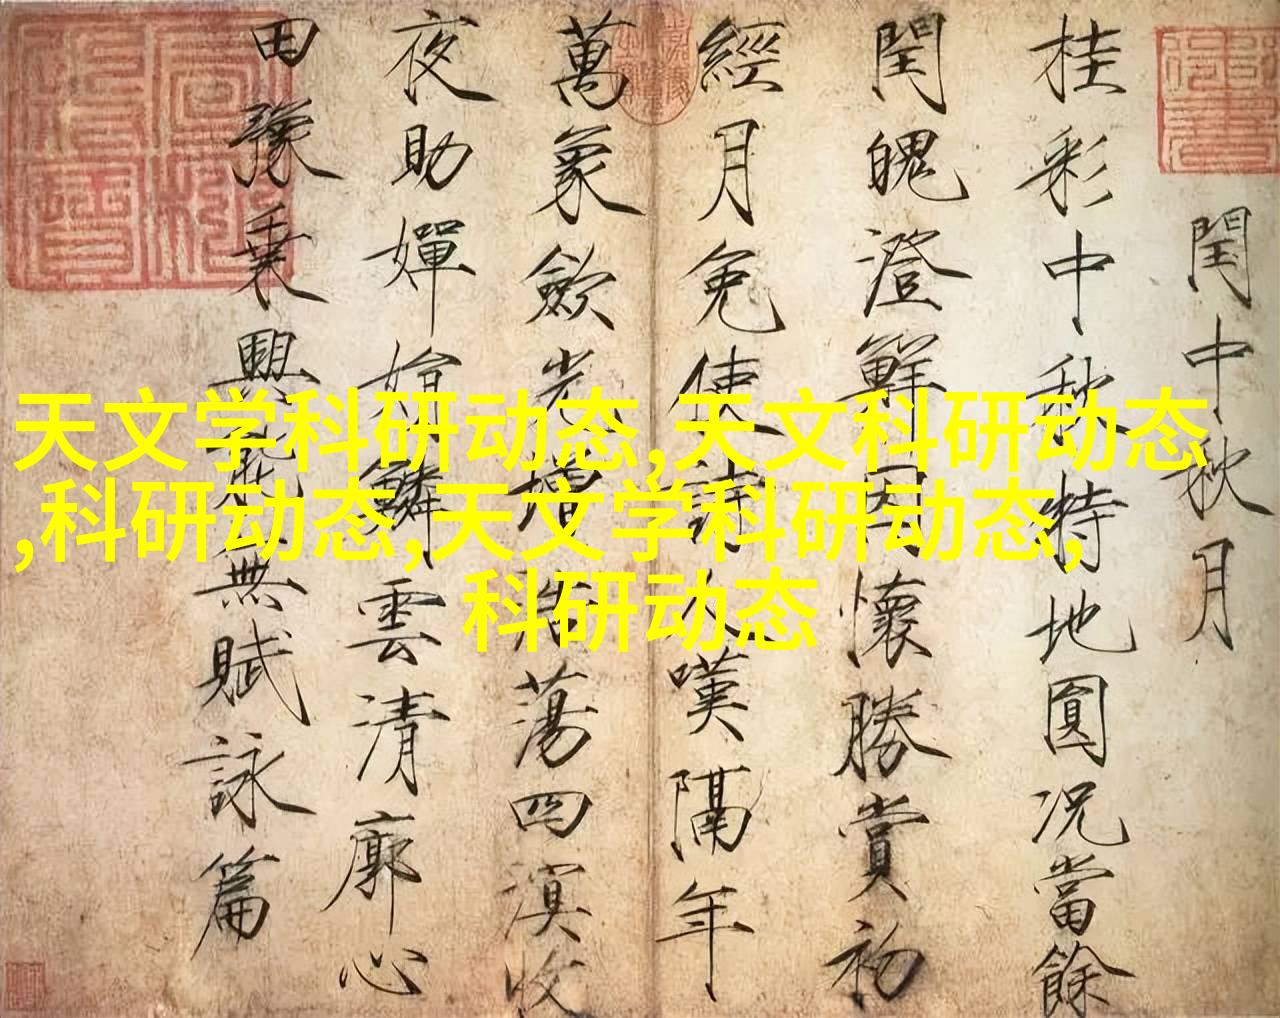 閏中秋月
桂彩中秋特地圓况當餘
閏魄澄鮮因懷勝賞初
經月免使詩人嘆隔年
萬象歛光增浩蕩四溟收
夜助嬋娟鱗雲清廓心
田豫乗興能無賦詠篇
天文学科研动态,天文科研动态
,科研动态,天文学科研动态,
科研动态